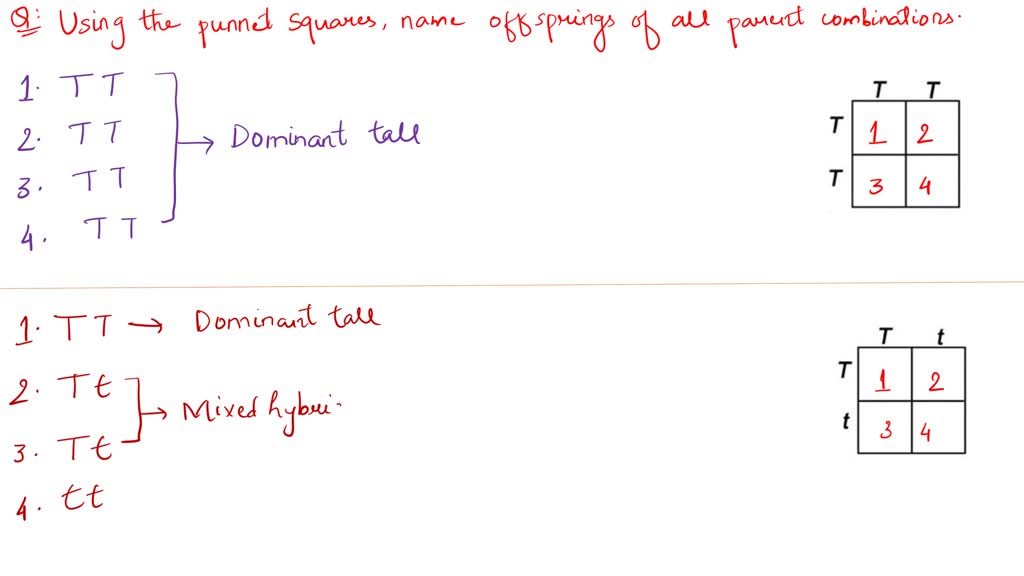 Q: Using the punnet squares, name offsprings of all parent combinations.
1. TT
2. TT
3. TT
4. TT
→ Dominant tall
T T
T 1 2
T 3 4
1. TT → Dominant tall
2. Tt
3. Tt
→ Mixed hybri
4. tt
T t
T 1 2
t 3 4